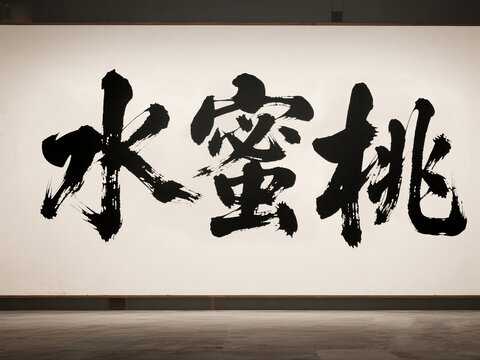 水蜜桃